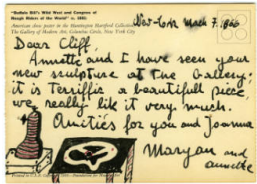 "Buffalo Bill's Wild West and Congress of
Rough Riders of the World"
American show poster in the Huntington Hartford Collection
The Gallery of Modern Art, Columbus Circle, New York City
New-York March 7.
Dear Cliff,
Annette and I have seen your
new sculpture at the Gallery:
it is Terrific a beautifull piece,
we really like it very much.
Amitiés for you and Joanna
Maryan and
annette
Printed in U.S.A.